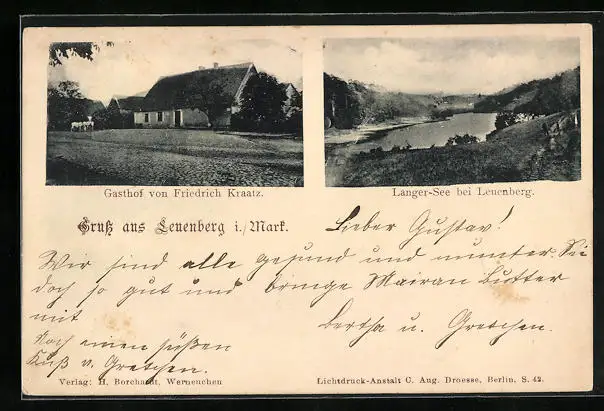 Gasthof von Friedrich Kraatz.
Langer-See bei Leuenberg.
Gruß aus Leuenberg i./Mark.
Lieber Gustav!
Wir sind alle gesund und munter. Sei
doch so gut und bringe Mairan Butter
mit
Bertha u. Gretchen.
Noch einen süßen
Kuß v. Gretchen.
Verlag: H. Borchardt, Werneuchen
Lichtdruck-Anstalt C. Aug. Droesse, Berlin, S. 42.